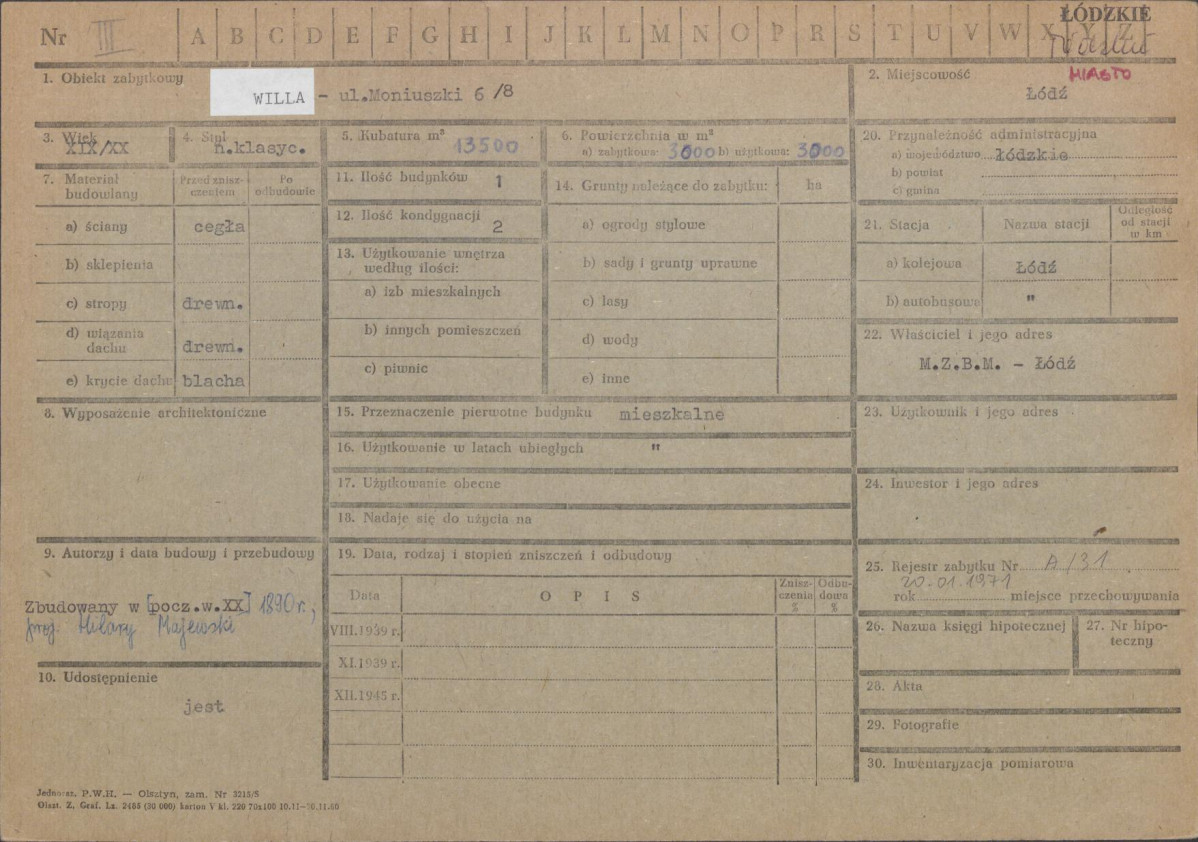 Nr III A B C D E F G H I J K L M N O P R S T U V W X Y Z
ŁÓDZKIE
MIASTO
1. Obiekt zabytkowy
WILLA - ul.Moniuszki 6/8
2. Miejscowość
Łódź
3. Wiek
XIX/XX
4. Styl
n.klasyc.
5. Kubatura m³
13500
6. Powierzchnia w m²
a) zabytkowa: 3000 b) użytkowa: 3000
20. Przynależność administracyjna
a) województwo łódzkie
b) powiat
c) gmina
7. Materiał budowlany
Przed znisz-
czeniem
Po
odbudowie
a) ściany cegła
b) sklepienia
c) stropy drewn.
d) wiązania
dachu drewn.
e) krycie dachu blacha
11. Ilość budynków 1
12. Ilość kondygnacji
2
13. Użytkowanie wnętrza
według ilości:
a) izb mieszkalnych
b) innych pomieszczeń
c) piwnic
14. Grunty należące do zabytku: ha
a) ogrody stylowe
b) sady i grunty uprawne
c) lasy
d) wody
e) inne
21. Stacja Nazwa stacji
Odległość
od stacji
w km
a) kolejowa Łódź
b) autobusowa "
22. Właściciel i jego adres
M.Z.B.M. - Łódź
8. Wyposażenie architektoniczne
15. Przeznaczenie pierwotne budynku mieszkalne
16. Użytkowanie w latach ubiegłych "
17. Użytkowanie obecne
18. Nadaje się do użycia na
23. Użytkownik i jego adres
24. Inwestor i jego adres
9. Autorzy i data budowy i przebudowy
Zbudowany w [pocz.w.XX] 1890r.;
proj. Hilary Majewski
10. Udostępnienie
jest
19. Data, rodzaj i stopień zniszczeń i odbudowy
Data OPIS
Znisz-
czenia
%
Odbu-
dowa
%
VIII.1939 r.
XI.1939 r.
XII.1945 r.
25. Rejestr zabytku Nr A/31
20.01.1971
rok miejsce przechowywania
26. Nazwa księgi hipotecznej
27. Nr hipo-
teczny
28. Akta
29. Fotografie
30. Inwentaryzacja pomiarowa
Jednoraz. P.W.H. — Olsztyn, zam. Nr 3215/5
Olszt. Z. Graf. Lz. 2488 (30 000) karton V kl. 220 70x100